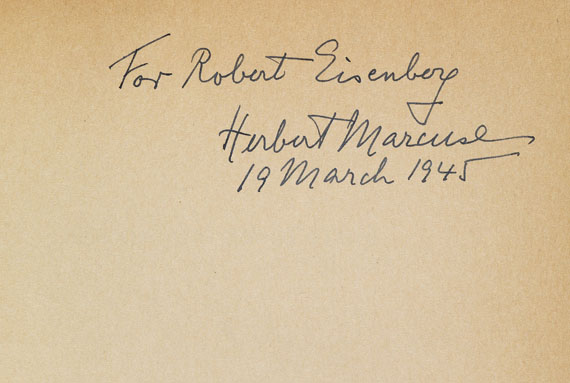 For Robert Eisenberg
Herbert Marcuse
19 March 1945